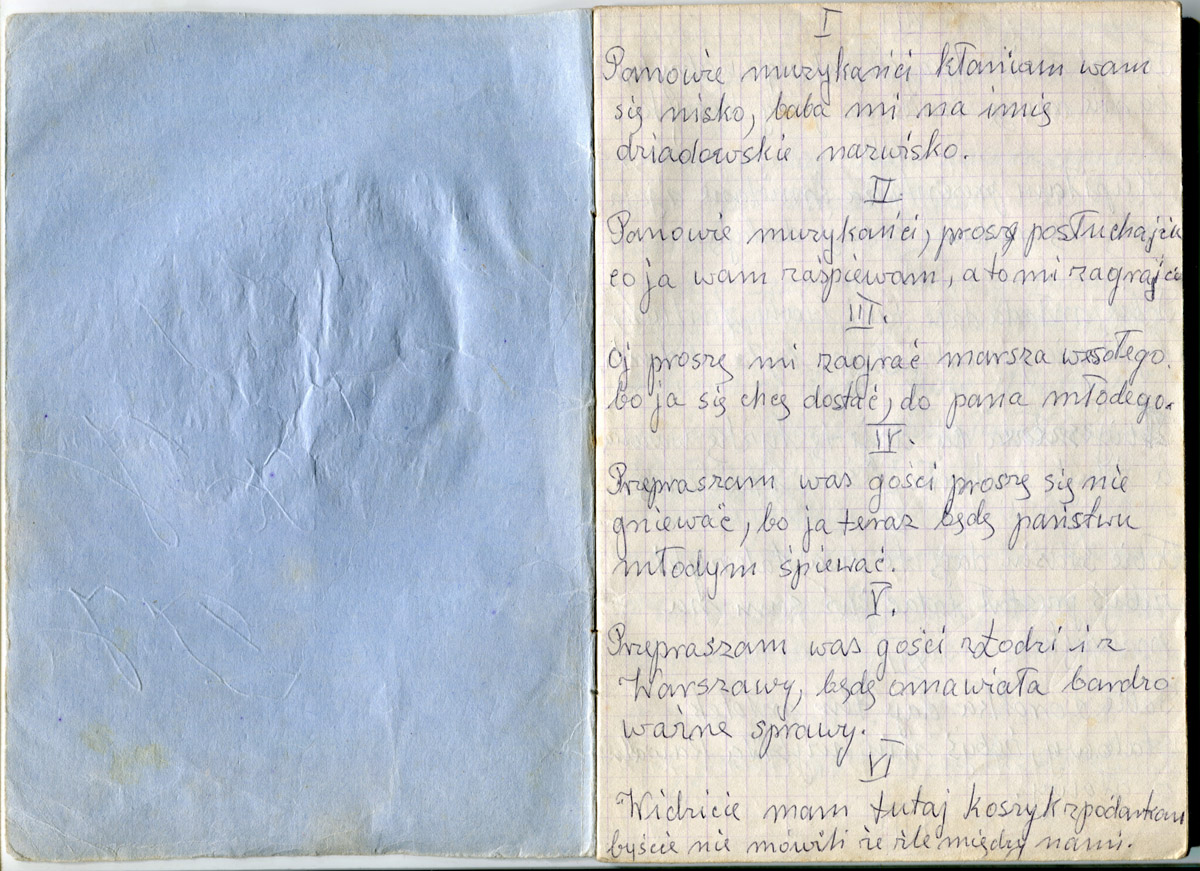 I
Panowie muzykańci kłaniam wam
się nisko, baba mi na imię
dziadowskie nazwisko.
II
Panowie muzykańci, proszę posłuchajcie
co ja wam zaśpiewam, a to mi zagrajcie
III.
Oj proszę mi zagrać marsza wesołego.
bo ja się chcę dostać, do pana młodego.
IV.
Przepraszam was gości proszę się nie
gniewać, bo ja teraz będę państwu
młodym śpiewać.
V.
Przepraszam was gości z Łodzi i z
Warszawy, będę omawiała bardzo
ważne sprawy.
VI
Widzicie mam tutaj koszyk z podarkam
byście nie mówili że źle między nami.